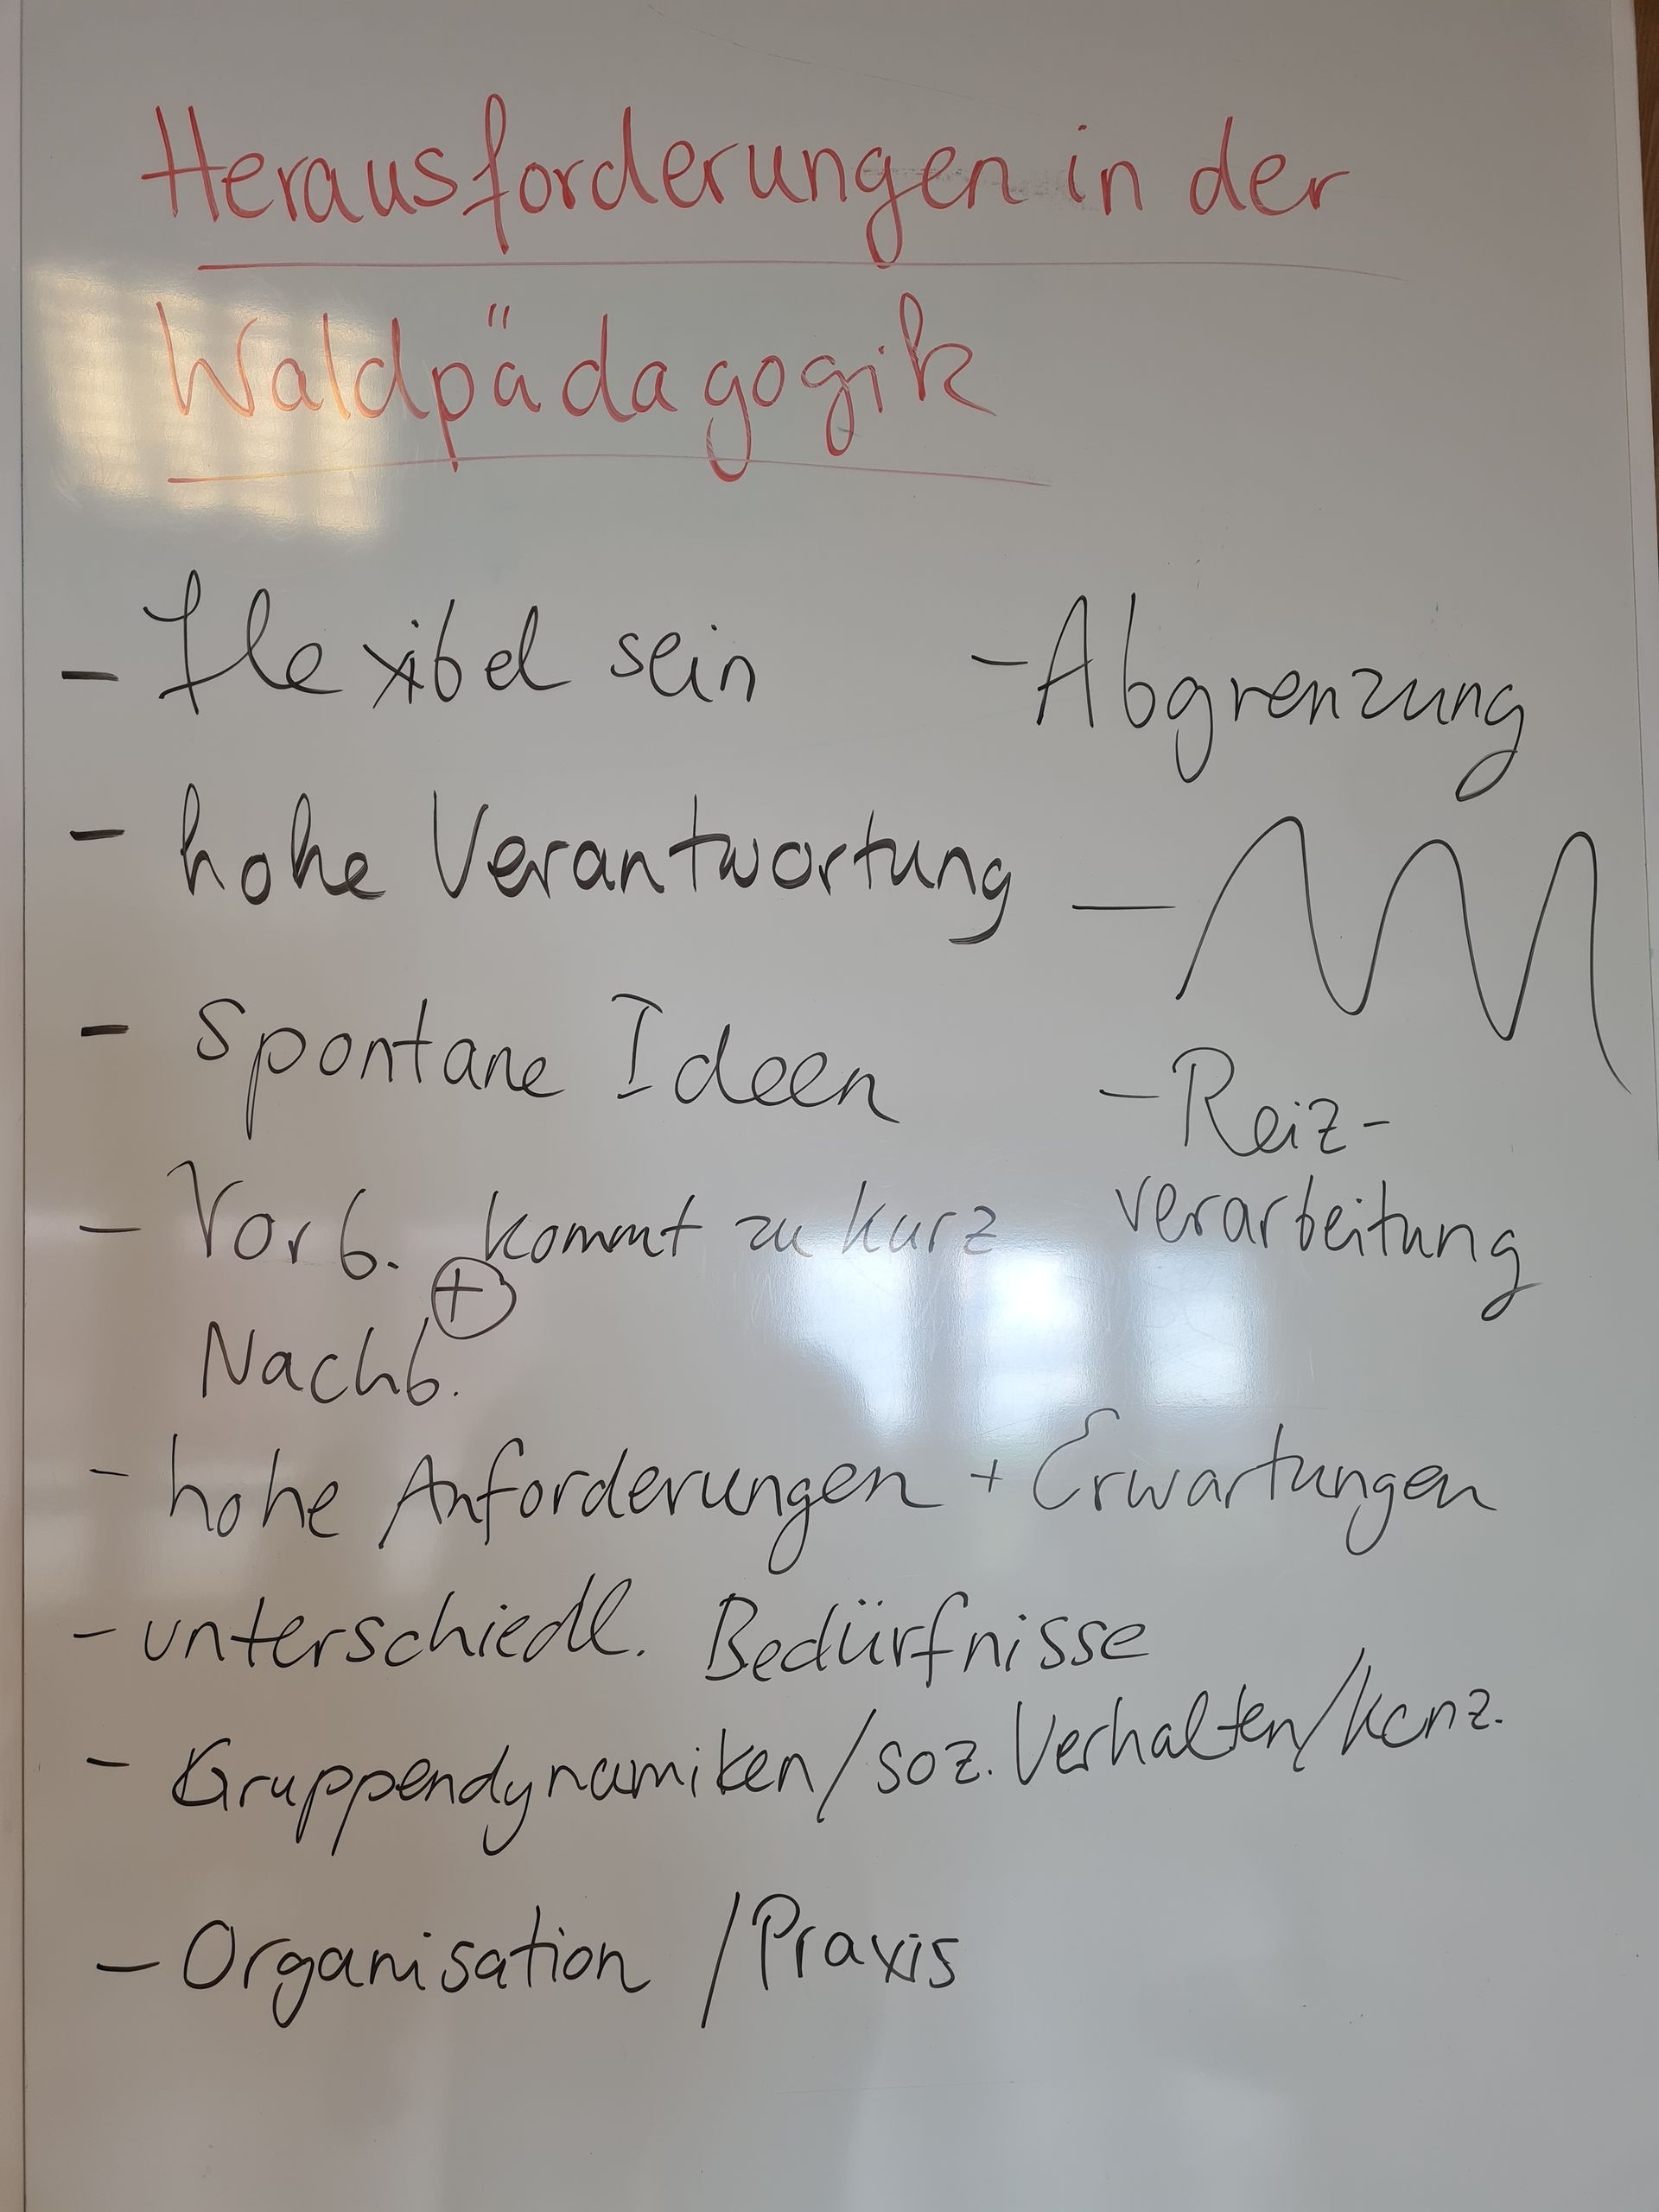 Herausforderungen in der
Waldpädagogik
- flexibel sein
- hohe Verantwortung
- Spontane Ideen
- Vorb. kommt zu kurz
+
Nachb.
- hohe Anforderungen + Erwartungen
- unterschiedl. Bedürfnisse
- Gruppendynamiken/soz. Verhalten/Konz.
- Organisation / Praxis
- Abgrenzung
-
- Reiz-
verarbeitung